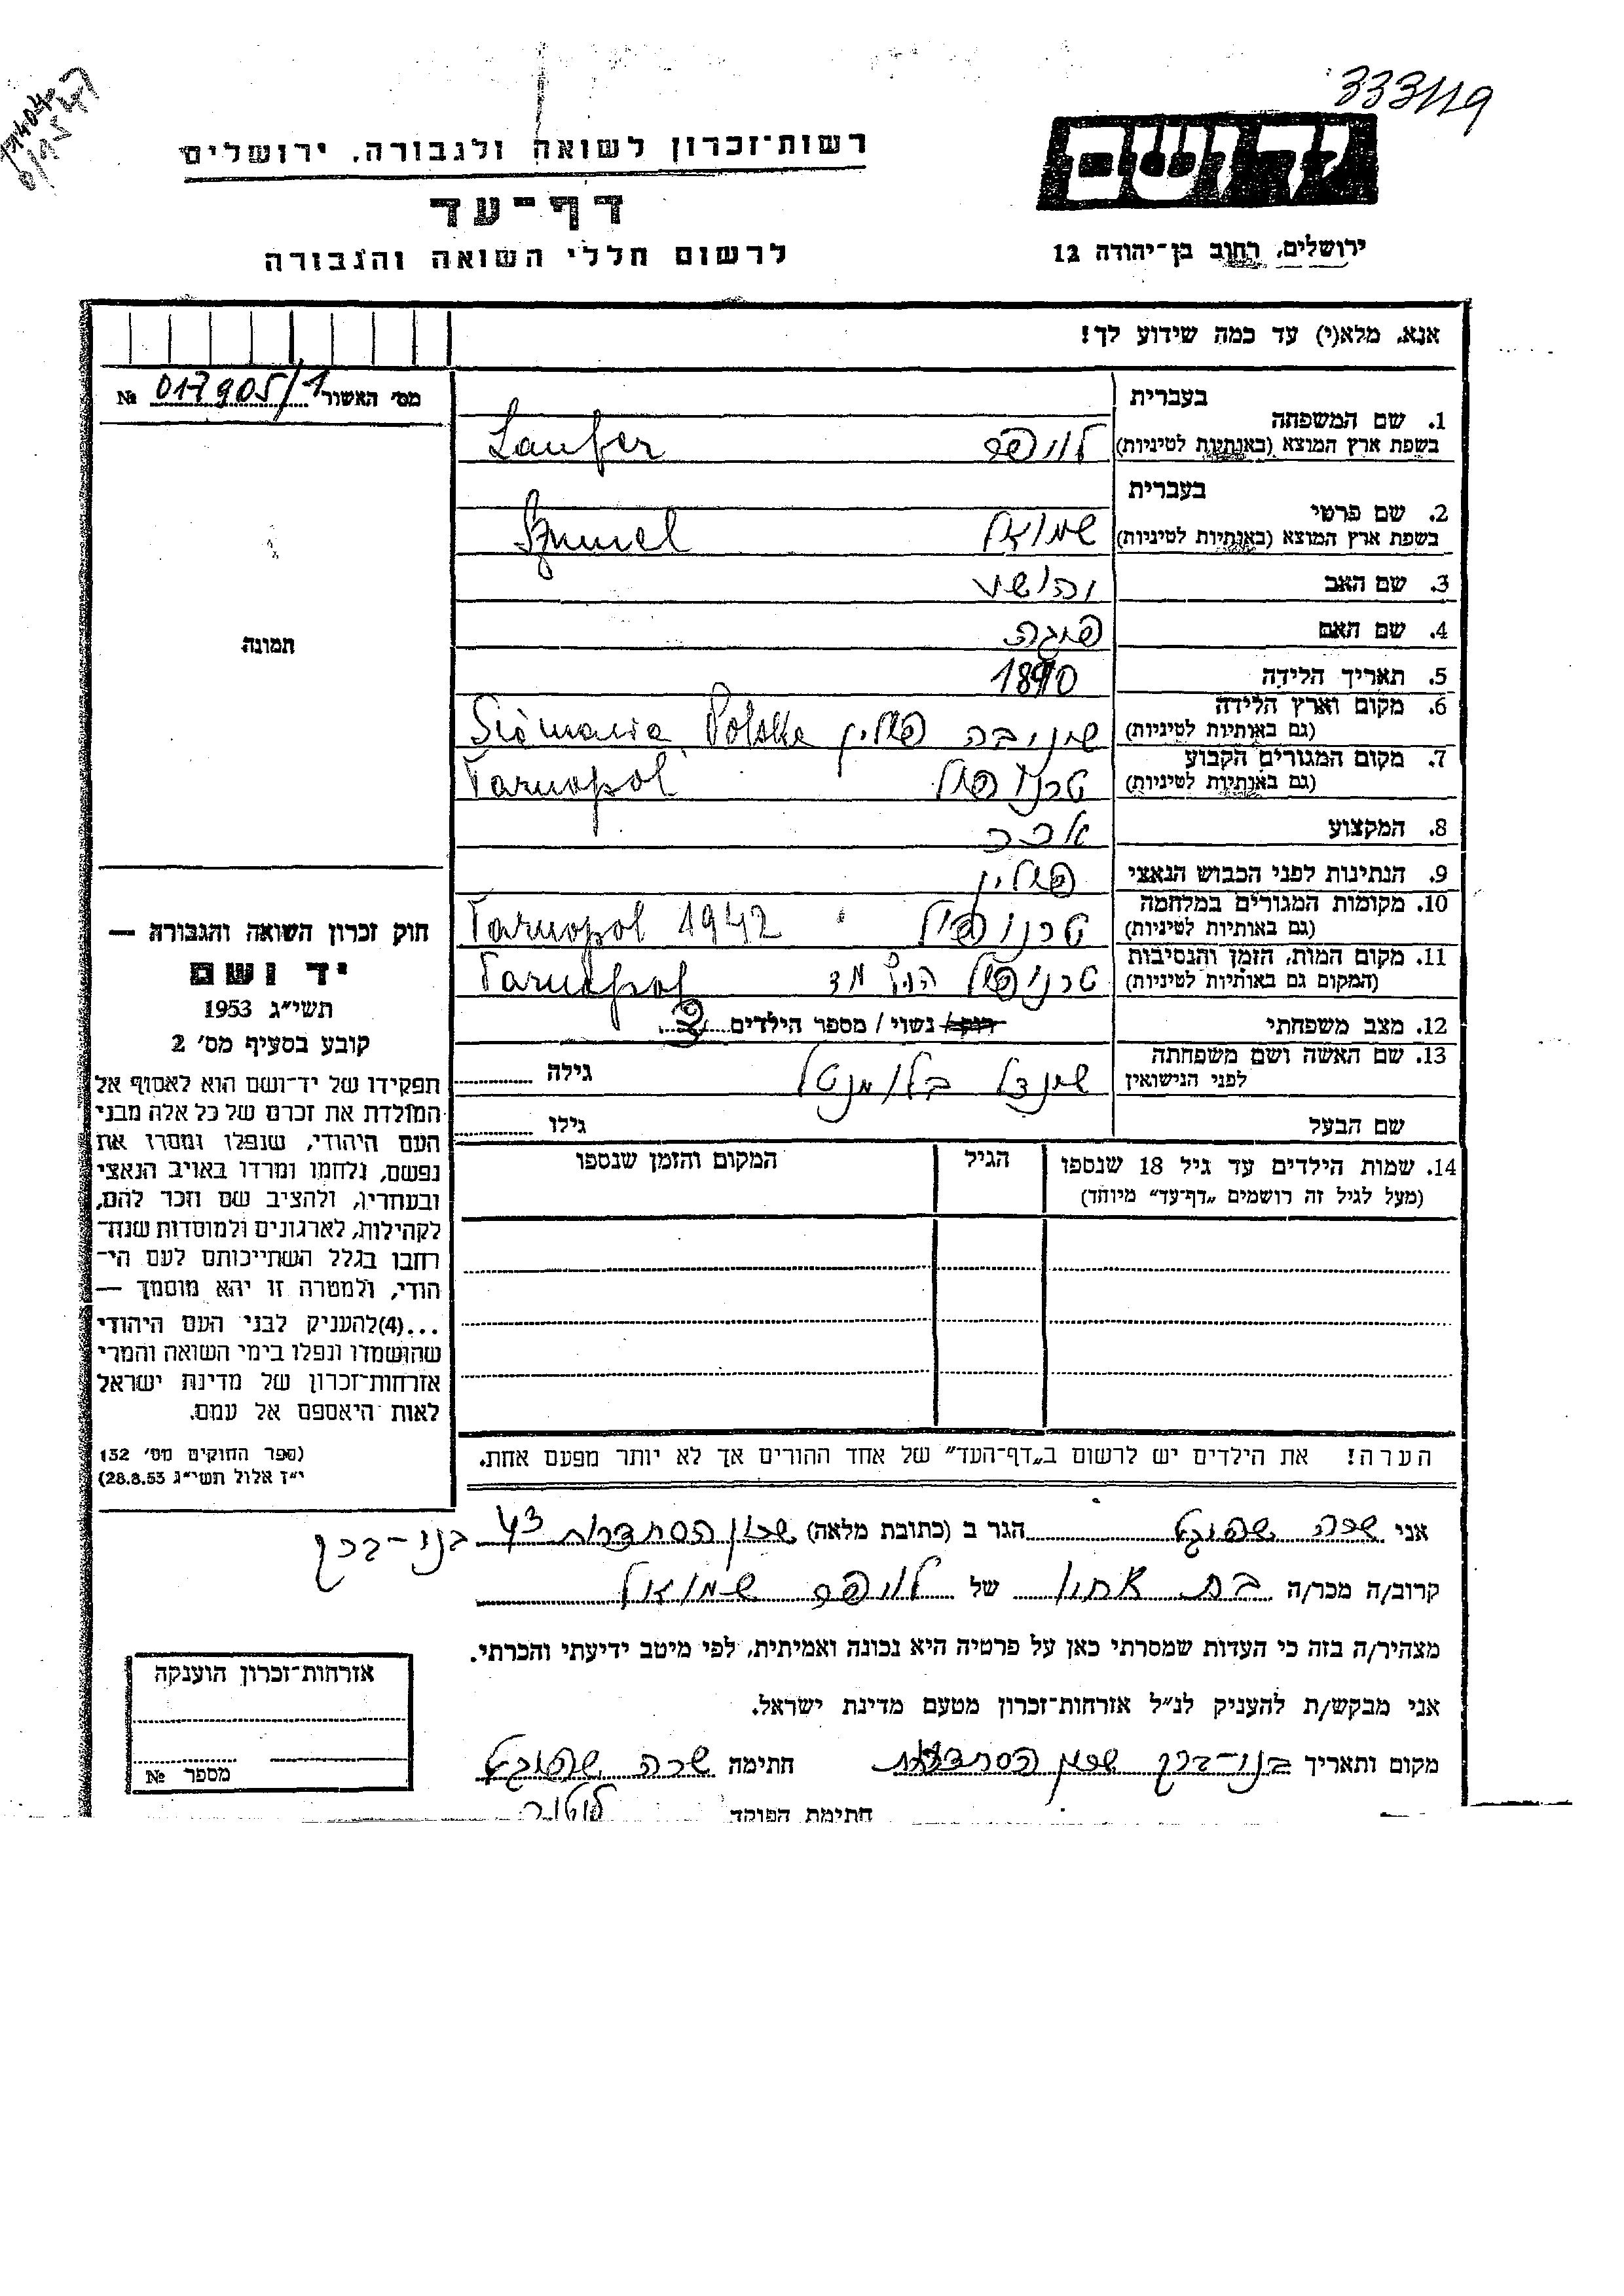 333119
רשות־זכרון לשואה ולגבורה, ירושלים
דף־עד
לרשום חללי השואה והגבורה
יד ושם
ירושלים, רחוב בן־יהודה 12
אנא, מלא(י) עד כמה שידוע לך!
מס׳ האשור 017905/1 №
תמונה
1. שם המשפחה
בעברית
בשפת ארץ המוצא (באותיות לטיניות)
לויפר Laufer
2. שם פרטי
בעברית
בשפת ארץ המוצא (באותיות לטיניות)
שמואל Szmuel
3. שם האב יהושע
4. שם האם פיגה
5. תאריך הלידה 1890
6. מקום וארץ הלידה
(גם באותיות לטיניות)
פולין Polska
7. מקום המגורים הקבוע
(גם באותיות לטיניות)
טרנופול Tarnopol
8. המקצוע
9. הנתינות לפני הכבוש הנאצי פולין
10. מקומות המגורים במלחמה
(גם באותיות לטיניות)
טרנופול Tarnopol 1942
11. מקום המות, הזמן והנסיבות
(המקום גם באותיות לטיניות)
טרנופול Tarnopol
12. מצב משפחתי רווק/ נשוי / מספר הילדים 2
13. שם האשה ושם משפחתה
לפני הנישואין
שינדל בלומנטל גילה
שם הבעל גילו
14. שמות הילדים עד גיל 18 שנספו
(מעל לגיל זה רושמים „דף־עד״ מיוחד)
הגיל
המקום והזמן שנספו
חוק זכרון השואה והגבורה —
יד ושם
תשי״ג 1953
קובע בסעיף מס׳ 2
תפקידו של יד־ושם הוא לאסוף אל
המולדת את זכרם של כל אלה מבני
העם היהודי, שנפלו ומסרו את
נפשם, נלחמו ומרדו באויב הנאצי
ובעוזריו, ולהציב שם וזכר להם,
לקהילות, לארגונים ולמוסדות שנח־
רחבו בגלל השתייכותם לעם הי־
הודי, ולמטרה זו יהא מוסמך —
...(4)להעניק לבני העם היהודי
שהושמדו ונפלו בימי השואה והמרי
אזרחות־זכרון של מדינת ישראל
לאות היאספם אל עמם.
(ספר החוקים מס׳ 132
י״ז אלול תשי״ג 28.8.53)
הערה! את הילדים יש לרשום ב„דף־העד״ של אחד ההורים אך לא יותר מפעם אחת.
אני שרה הגר ב (כתובת מלאה) שכון הסתדרות בני-ברק
קרוב/ה מכר/ה בת אחון של לויפר שמואל
מצהיר/ה בזה כי העדות שמסרתי כאן על פרטיה היא נכונה ואמיתית, לפי מיטב ידיעתי והכרתי.
אני מבקש/ת להעניק לנ״ל אזרחות־זכרון מטעם מדינת ישראל.
מקום ותאריך בני-ברק שכון הסתדרות חתימה שרה
חתימת הפוקד
אזרחות־זכרון הוענקה
מספר №